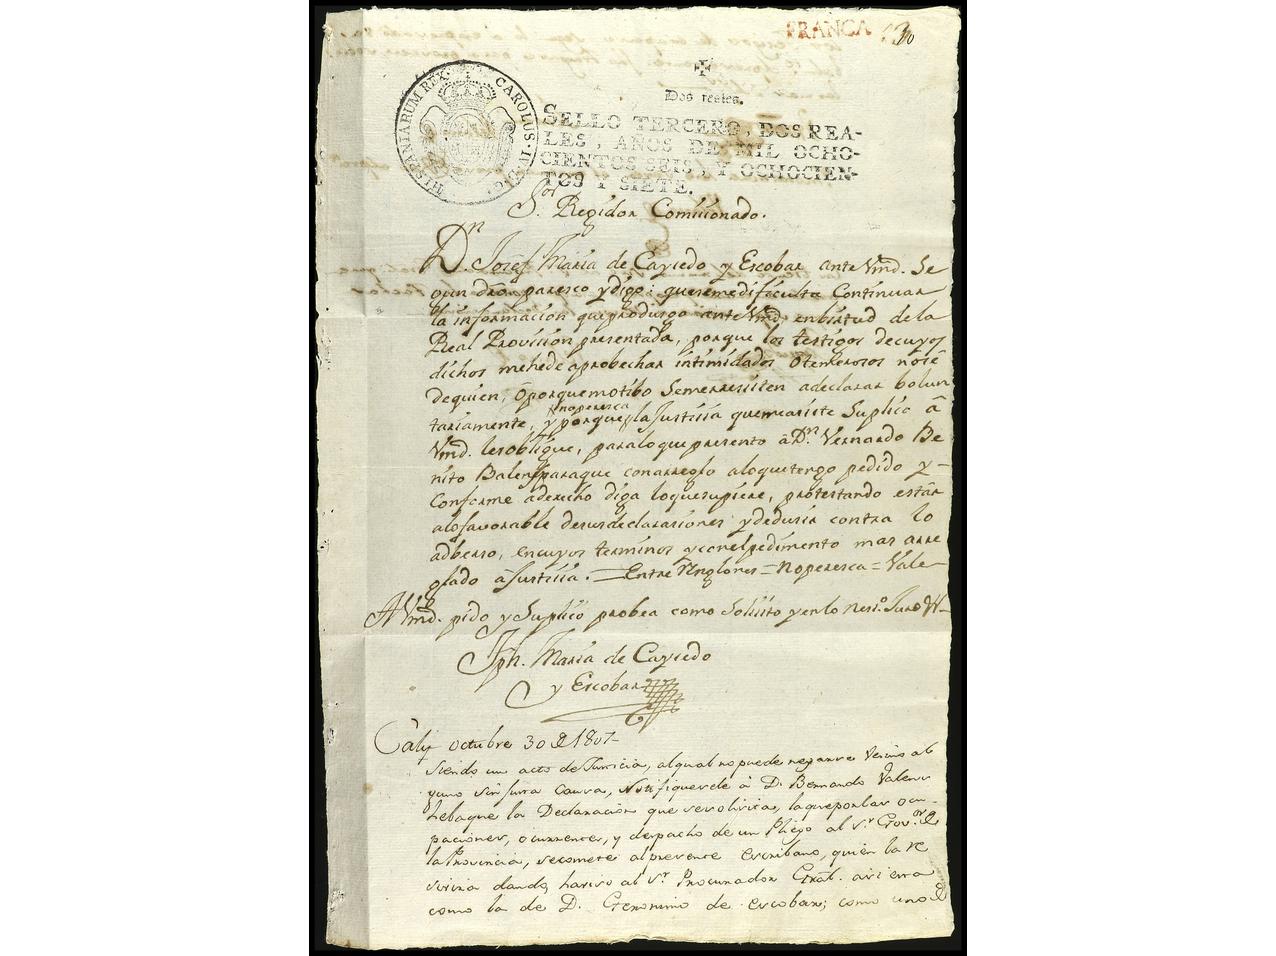 FRANCA
Dos reales.
HISPANIARUM REX CAROLUS IV D G
SELLO TERCERO, DOS REA-
LES, AÑOS DE MIL OCHO-
CIENTOS SEIS, Y OCHOCIEN-
TOS Y SIETE.
S.or Regidor Comicionado.
Dn. Josef Maria de Caycedo y Escobar ante Vmd. Se
gun dro. paresco y digo: que se me dificulta Continuar
la informacion que produsgo ante Vmd. en birtud de la
Real Provision presentada, porque los testigos de cuyos
dichos me he de aprobechar intimidados ó temerosos no sé
de quien, ó por que motibo se me rresisten a declarar bolun
tariamente, y porque
no peresca
la Justisia que me aciste Suplico â
Vmd. les obligue, para lo que presento â Dn. Vernardo Be
nito Balens para que con arreglo a lo que tengo pedido y
Conforme a derecho diga lo que supiere, protestando estár
a lo favorable de sus declarasiones y dedusir contra lo
adberso, en cuyos terminos y con el pedimento mas arre
glado â Justisia. Entre Rnglones = No peresca = Vale
A Vmd. pido y Suplico probea como Solisito y en lo Nesso. Juro &
Jph. Maria de Caycedo
y Escobar
Cali octubre 30 de 1807
Siendo un acto de Justicia, al qual no puede negarse Vecino al
guno sin justa causa, Notifiquesele à D. Bernardo Valens
haga la Declaracion que se solicita, la que por las ocu-
paciones, ocurrentes, y despacho de un Pliego al Sr. Govor. de
la Provincia, se comete al presente escribano, quien la re
sivira dando haviso al Sr. Procurador Gral. asi esta
como la de D. Geronimo de escobar; como uno de